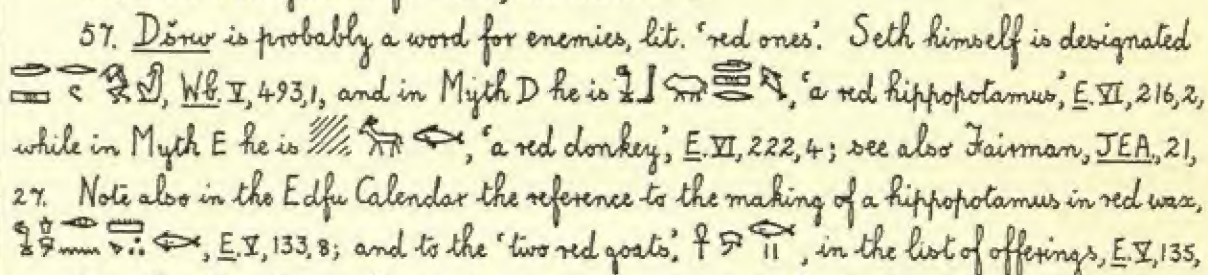 57. Dšrw is probably a word for enemies, lit. 'red ones'. Seth himself is designated
, Wb. V, 493,1, and in Myth D he is , 'a red hippopotamus', E. VI, 216,2,
while in Myth E he is , 'a red donkey', E. VI, 222,4; see also Fairman, JEA, 21,
27. Note also in the Edfu Calendar the reference to the making of a hippopotamus in red wax,
, E. V, 133,8; and to the 'two red goats', , in the list of offerings, E. V, 135,